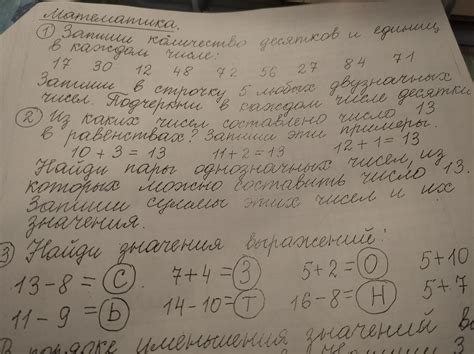 Математика.
① Запиши количество десятков и единиц
в каждом числе:
17 30 12 48 72 56 27 84 71
Запиши в строчку 5 любых двузначных
чисел. Подчеркни в каждом числе десятки
② Из каких чисел составлено число 13
в равенствах? Запиши эти примеры.
10 + 3 = 13 11 + 2 = 13 12 + 1 = 13
Найди пары однозначных чисел, из
которых можно составить число 13.
Запиши суммы этих чисел и их
значения.
3) Найди значения выражений:
13 - 8 = С 7 + 4 = З 5 + 2 = О 5 + 10
11 - 9 = Ь 14 - 10 = Т 16 - 8 = Н 5 + 7
В порядке уменьшения значений